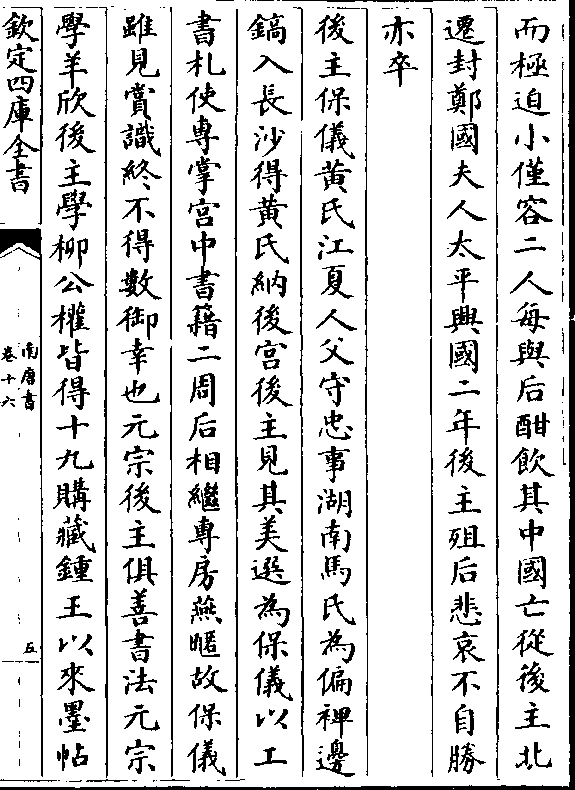 而極迫小僅容二人每與后酣飲其中國亡從後主北
遷封鄭國夫人太平興國二年後主殂后悲哀不自勝
亦卒
後主保儀黄氏江夏人父守忠事湖南馬氏為偏裨邊
鎬入長沙得黄氏納後宫後主見其美選為保儀以工
書札使專掌宫中書籍二周后相繼專房燕暱故保儀
雖見賞識終不得數御幸也元宗後主俱善書法元宗
學羊欣後主學柳公權皆得十九購藏鍾王以來墨帖
欽定四庫全書
南唐書
卷十六
五